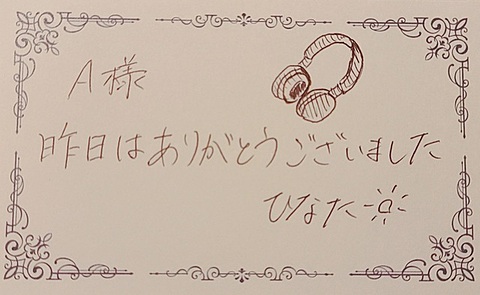 A様
昨日はありがとうございました
ひなた